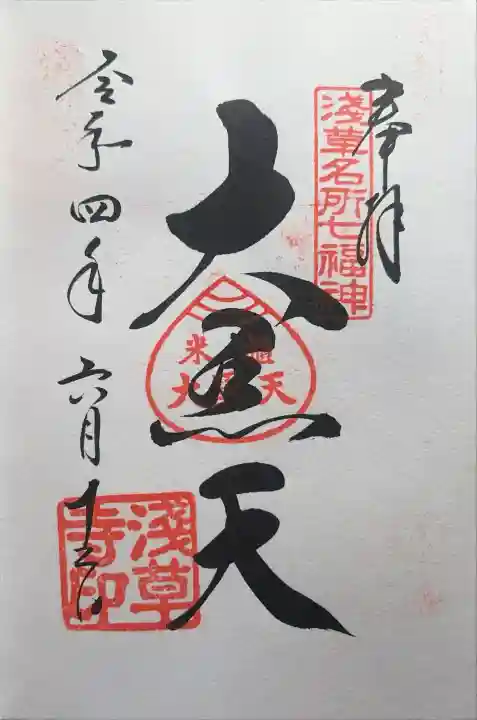 奉拝
淺草名所七福神
大黒天
米
大 天
令和四年六月十三日
淺草寺印